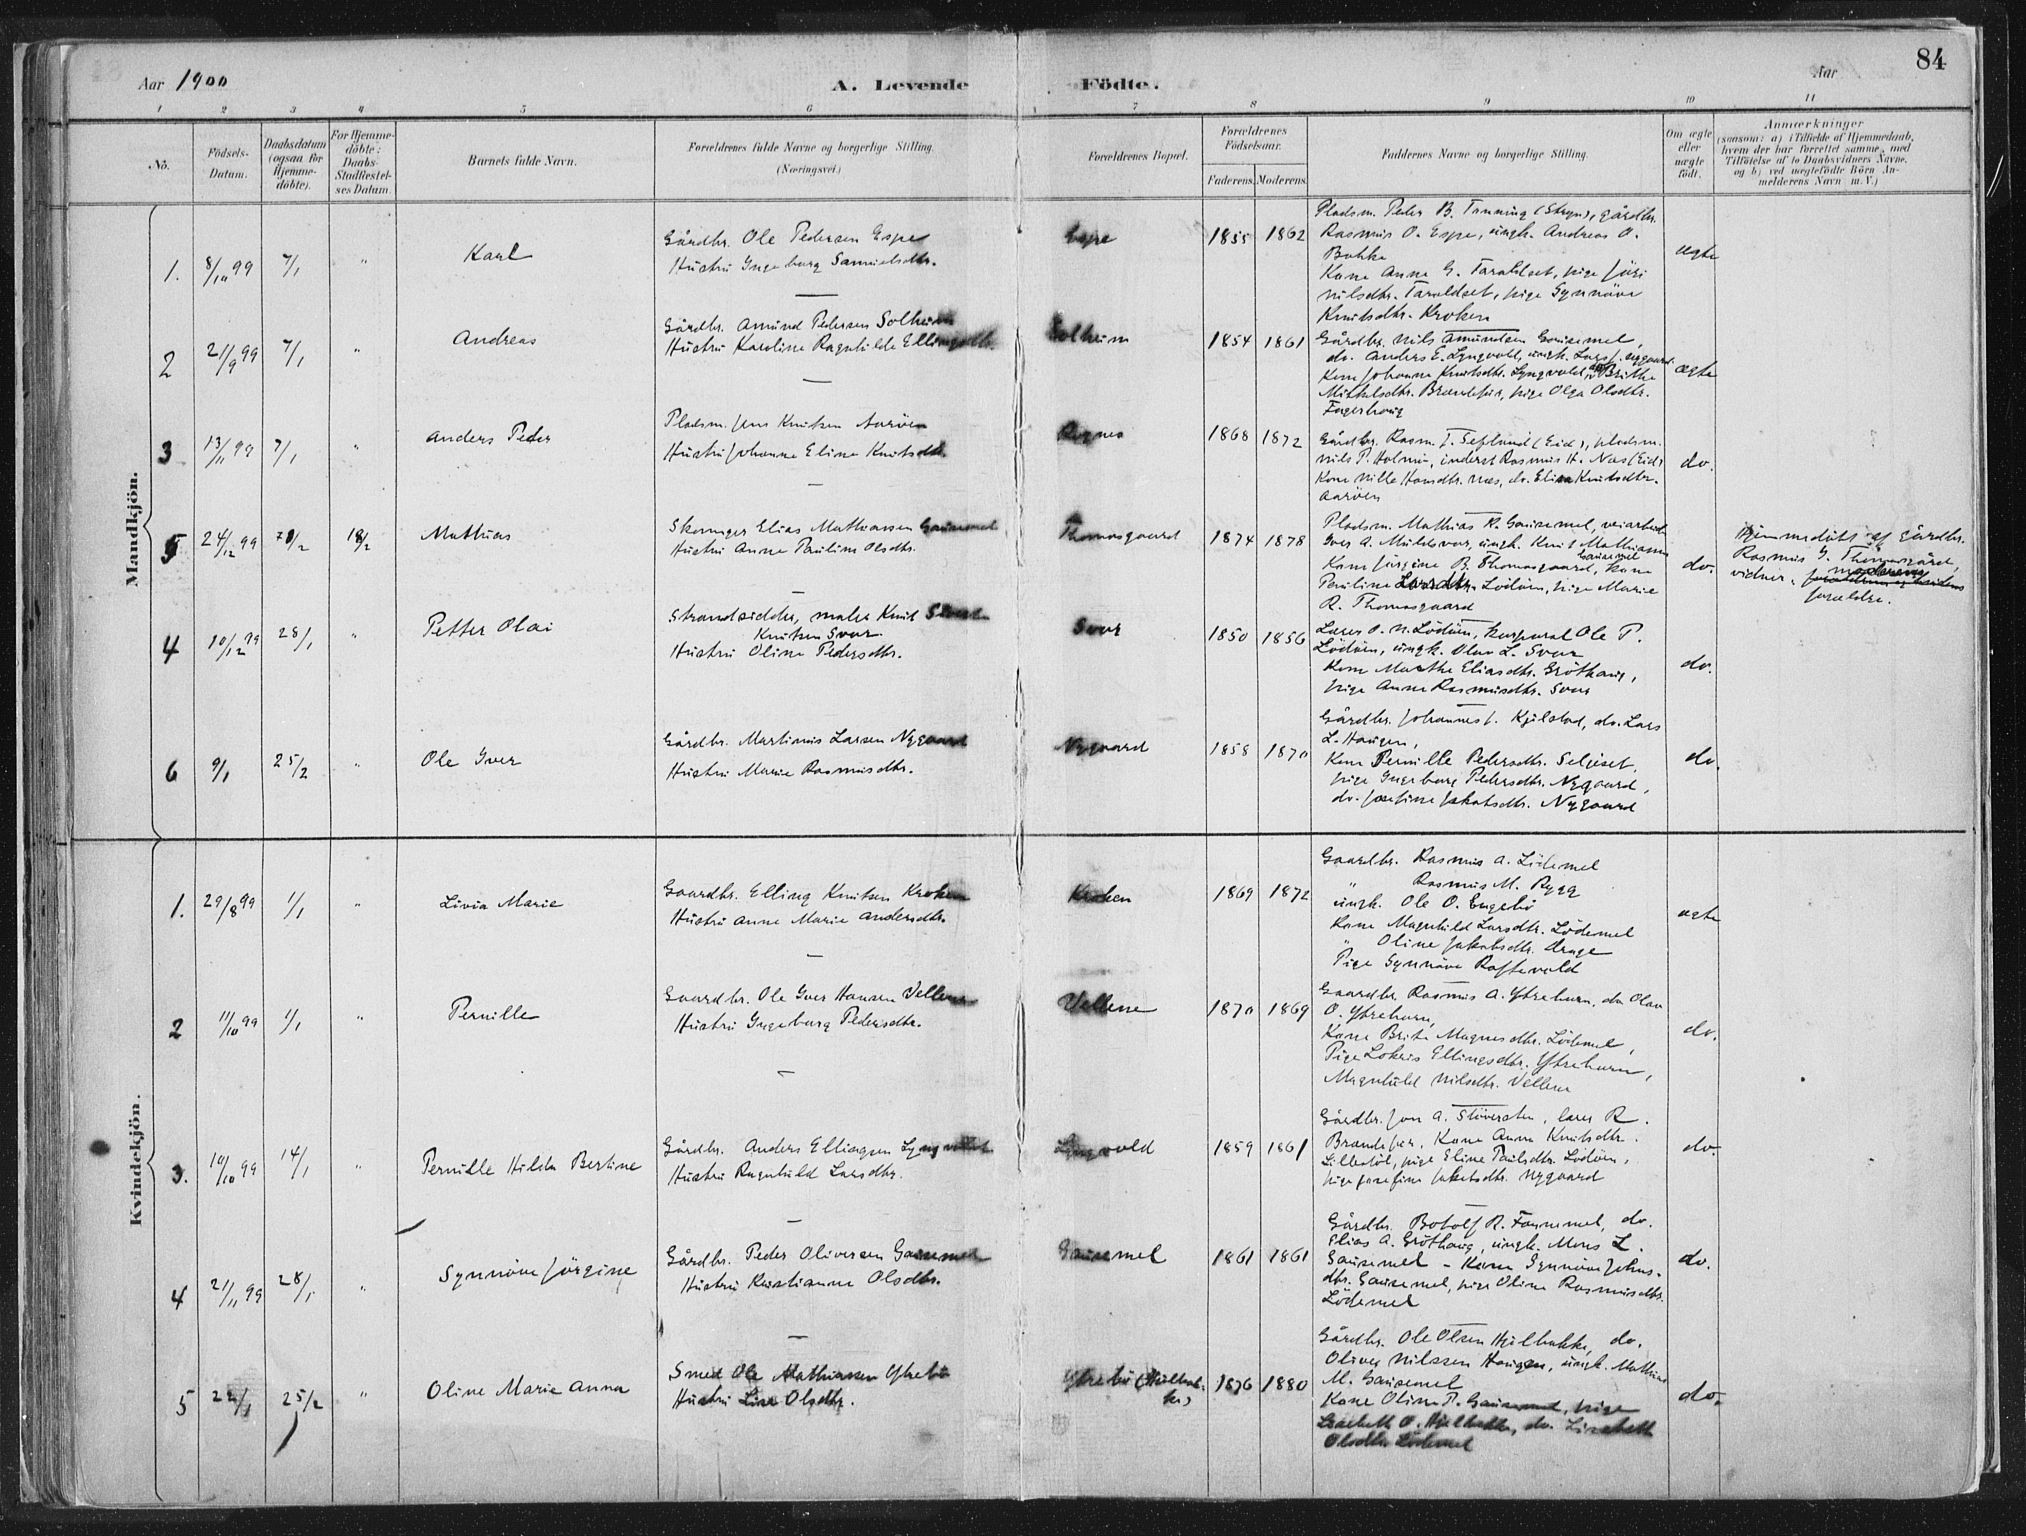 84
Aar 1900
A. Levende Födte.
Aar
1 2 3 4 5 6 7 8 9 10 11
Nö.
Födsels-Datum.
Daabsdatum (ogsaa for Hjemmedöbte).
For Hjemmedöbte: Daabs-Stadfæstelses Datum.
Barnets fulde Navn.
Forældrenes fulde Navne og borgerlige Stilling. (Næringsvei.)
Forældrenes Bopæl.
Forældrenes Födselsaar.
Faderens. Moderens.
Faddernes Navne og borgerlige Stilling.
Om ægte eller uægte födt.
Anmærkninger
(saasom: a) i Tilfælde af Hjemmedaab, hvem der har forrettet samme, med Tilföielse af to Daabsvidners Navne, og b) ved uægtefödte Börn Anmelderens Navn m. V.)
Mandkjön.
1. 8/10 99 7/1 " Karl
Gårdbr. Ole Pedersen Espe
Hustru Ingeborg Samuelsdtr.
Espe 1855 1862
Pladsm. Peder B. Tenning (Stryn), gårdbr.
Rasmus O. Espe, ungk. Andreas O.
Bakke
Kone Anne G. Taraldset, pige Juri
Nilsdtr. Taraldset, pige Synnöve
Knutsdtr. Kroken
ægte
2 21/9 99 7/1 " Andreas
Gårdbr. Amund Pedersen Solheim
Hustru Karoline Ragnhilde Ellingsdtr.
Solheim 1854 1861
Gårdbr. Nils Amundsen Gausemel,
do. Anders E. Lyngvold, ungk. Lars J. Nygaard
Kone Johanne Knutsdtr. Lyngvold, do Brithe
Mikkelsdtr. Brandsför, pige Olga Olsdtr.
Fagerhaug
ægte
3 13/11 99 7/1 " Anders Peter
Pladsm. Jens Knutsen Aaröen
Hustru Johanne Eline Knutsdtr.
Rognes 1868 1872
Gårdbr. Rasm. J. Seflund (Eid), pladsm.
Nils P. Holmö, inderst Rasmus H. Nes (Eid)
Kone Nille Hansdtr. Næs, do. Elisa Knutsdtr.
Aaröen
do.
5 24/12 99 18/2 Mathias
Skomager Elias Mathiassen Gausemel
Hustru Anne Pauline Olsdtr.
Thomasgaard 1874 1878
Pladsm. Mathias K. Gausemel, veiarbeider
Iver A. Muldsvor, ungk. Knut Mathiassen
Gausemel
Kone Jörgine B. Thomasgaard, kone
Pauline Larsdtr. Lödöen, pige Marie
R. Thomasgaard
do.
Hjemmedöbt af gårdbr.
Rasmus G. Thomasgård,
vidner: moderens
forældre.
4 10/12 99 28/1 " Petter Olai
Strandsidder, maler Knut
Knutsen Svor
Hustru Oline Pedersdtr.
Svor 1850 1856
Lærer O. N. Lödöen, korporal Ole P.
Lödöen, ungk. Olav L. Svor
Kone Marthe Eliasdtr. Gröthaug,
pige Anne Rasmusdtr. Svor
do.
6 9/1 25/2 " Ole Iver
Gårdbr. Martinus Larsen Nygaard
Hustru Marie Rasmusdtr.
Nygaard 1858 1870
Gårdbr. Johannes J. Kjölstad, do. Lars
L. Haugen,
Kone Pernille Pedersdtr. Seljeset,
pige Ingeborg Pedersdtr. Nygaard,
do. Josefine Jakobsdtr. Nygaard
do.
Kvindekjön.
1. 29/8 99 1/1 " Livia Marie
Gaardbr. Elling Knutsen Kroken
Hustru Anne Marie Andersdtr.
Kroken 1869 1872
Gaardbr. Rasmus A. Lödemel
" Rasmus M. Rygg
ungk. Ole O. Engebö
Kone Magnhild Larsdtr. Lödemel
" Oline Jakobsdtr. Drage
Pige Synnöve Raftevold
ægte
2 11/10 99 1/1 " Pernille
Gaardbr. Ole Iver Hansen Vellene
Hustru Ingeborg Pedersdtr.
Vellene 1870 1869
Gaardbr. Rasmus A. Ytrehorn, do Olav
O. Ytrehorn,
Kone Brite Magnesdtr. Lödemel,
Pige Lokris Ellingsdtr. Ytrehorn,
Magnhild Nilsdtr. Vellene
do.
3. 10/10 99 14/1 " Pernille Hilda Bertine
Gårdbr. Anders Ellingsen Lyngvold
Hustru Ragnhild Larsdtr.
Lyngvold 1859 1861
Gårdbr. Jon A. Stöversten, lærer R.
Brandsför, Kone Anne Knutsdtr.
Lillestöl, pige Eline Paulsdtr. Lödöen,
pige Josefine Jakobsdtr. Nygaard
do.
4 21/11 99 28/1 " Synnöve Jörgine
Gårdbr. Peder Oliversen Gausemel
Hustru Kristianne Olsdtr.
Gausemel 1861 1861
Gårdbr. Botolf R. Fannemel, do.
Elias A. Gröthaug, ungk. Mons L.
Gausemel – Kone Synnöve Johns-
dtr. Gausemel, pige Oline Rasmusdtr.
Lödemel
do.
5 22/1 25/2 " Oline Marie Anna
Smed Ole Mathiassen Ytrebö
Hustru Lise Olsdtr.
Ytrebö (Hjelbak-
ke) 1876 1880
Gårdbr. Ole Olsen Hjelbakke, do.
Oliver Nilssen Haugen, ungk. Mathias
M. Gausemel
Kone Oline P. Gausemel, pige
Lisebeth O. Hjelbakke, do. Lisebeth
Olsdtr Lödemel
do.